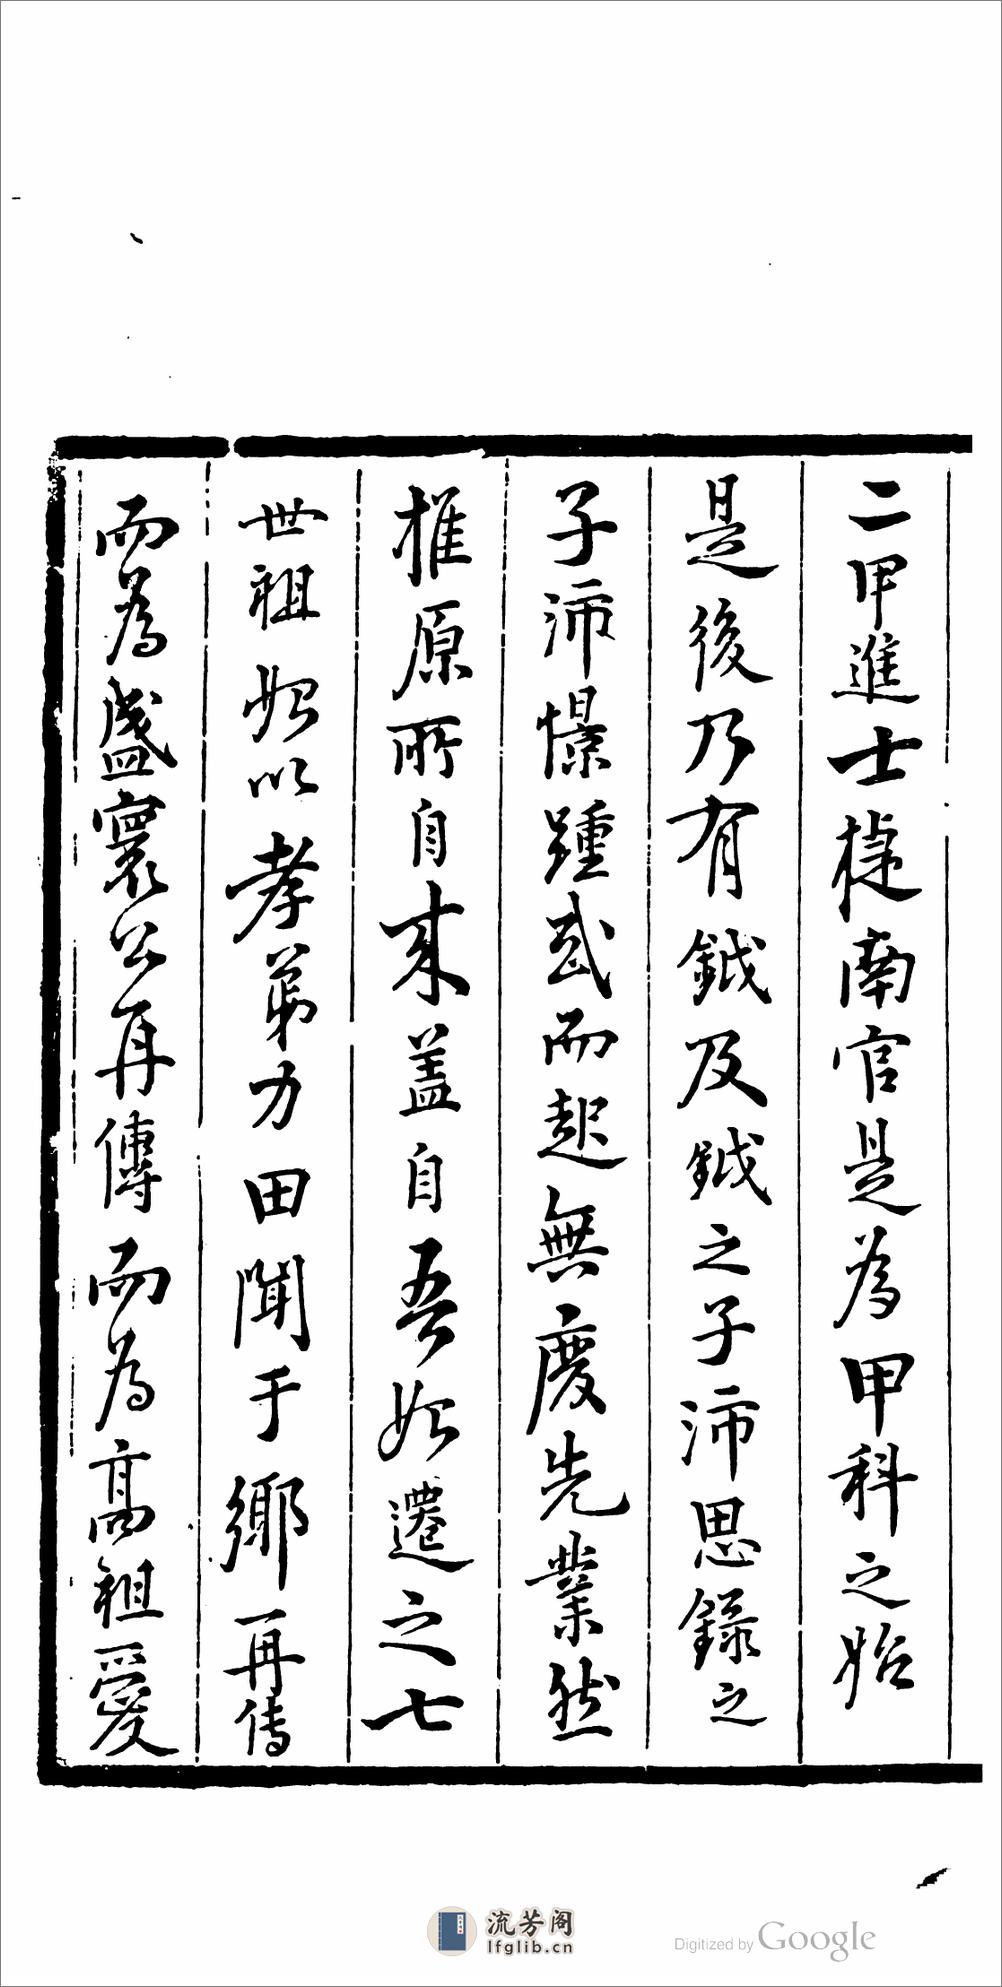 二甲進士捷南宮是為甲科之始
是後乃有鉞及鉞之子沛思錄之
子沛憬踵武而起無廢先業然
推原所自来盖自吾始遷之七
世祖始以孝弟力田聞于鄉再传
而為盛寰公再傳而為高祖愛
流芳阁
lfglib.cn
Digitized by Google